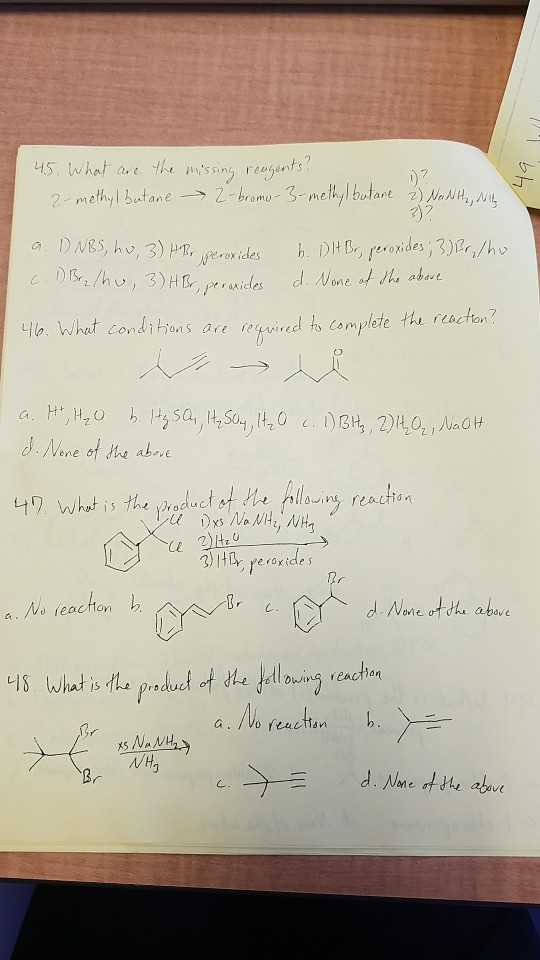 45. What are the missing reagents?
2-methylbutane → 2-bromo-3-methylbutane 1)?
2) NaNH₂, NH₃
3)?
a. 1) NBS, hυ, 3) HBr, peroxides b. 1) HBr, peroxides; 3) Br₂/hυ
c. 1) Br₂/hυ, 3) HBr, peroxides d. None of the above
46. What conditions are required to complete the reaction?
→
O
a. H⁺, H₂O b. HgSO₄, H₂SO₄, H₂O c. 1) BH₃, 2) H₂O₂, NaOH
d. None of the above
47. What is the product of the following reaction
Cl
Cl
1) xs NaNH₂, NH₃
2) H₂O
3) HBr, peroxides
a. No reaction b. Br c. Br d. None of the above
48. What is the product of the following reaction
Br
Br
xs NaNH₂
NH₃
a. No reaction b.
c. d. None of the above
49